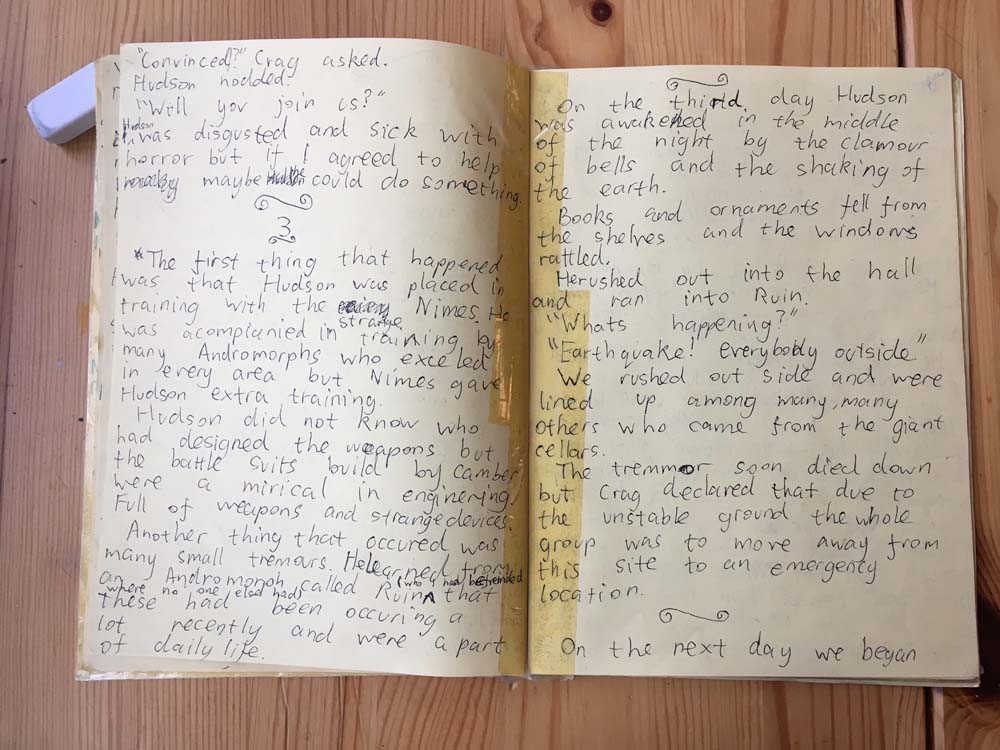 "Convinced!?" Crag asked.
Hudson nodded.
"Will you join us?"
Hudson
was disgusted and sick with
horror but if I agreed to help
maybe could do something.
3
*The first thing that happened
was that Hudson was placed in
training with the Nimes. He
strange
was acompianied in training by
many Andromorphs who exceled
in every area but Nimes gave
Hudson extra training.
Hudson did not know who
had designed the weapons but
the battle suits build by camber
were a mirical in enginering,
Full of weapons and strange devices.
Another thing that occured was
many small tremours. He learned from
an Andromorph called Ruin (who had befreinded
where no one else had) that
these had been occuring a
lot recently and were a part
of daily life.
On the third day Hudson
was awakened in the middle
of the night by the clamour
of bells and the shaking of
the earth.
Books and ornaments fell from
the shelves and the windows
rattled.
He rushed out into the hall
and ran into Ruin.
"Whats happening?"
"Earthquake! everybody outside"
We rushed out side and were
lined up among many, many
others who came from the giant
cellars.
The tremmor soon died down
but Crag declared that due to
the unstable ground the whole
group was to move away from
this site to an emergenty
location.
On the next day we began